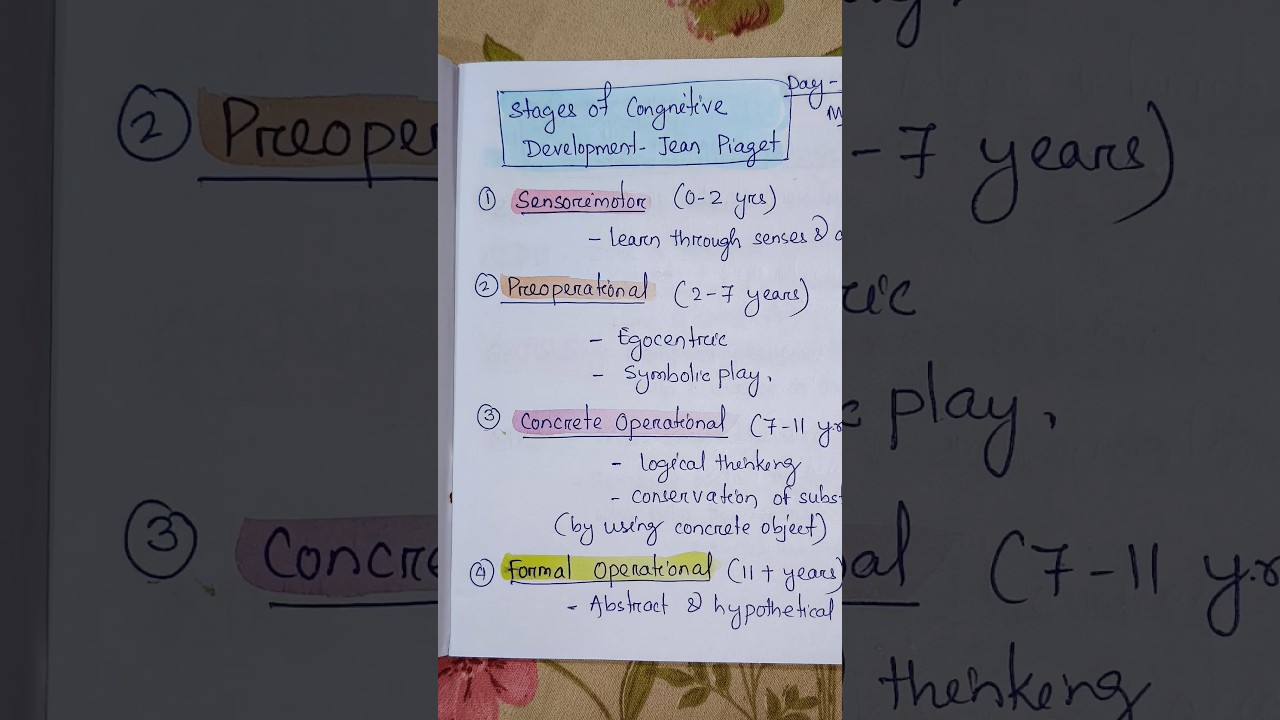 Day-
Stages of Congnitive
Development- Jean Piaget
① Sensorimotor (0-2 yrs)
- learn through senses &
② Preoperational (2-7 years)
- Egocentric
- Symbolic play.
③ Concrete Operational (7-11 yr
- logical thinking
- conservation of subst
(by using concrete object)
④ Formal Operational (11+ years)
- Abstract & hypothetical